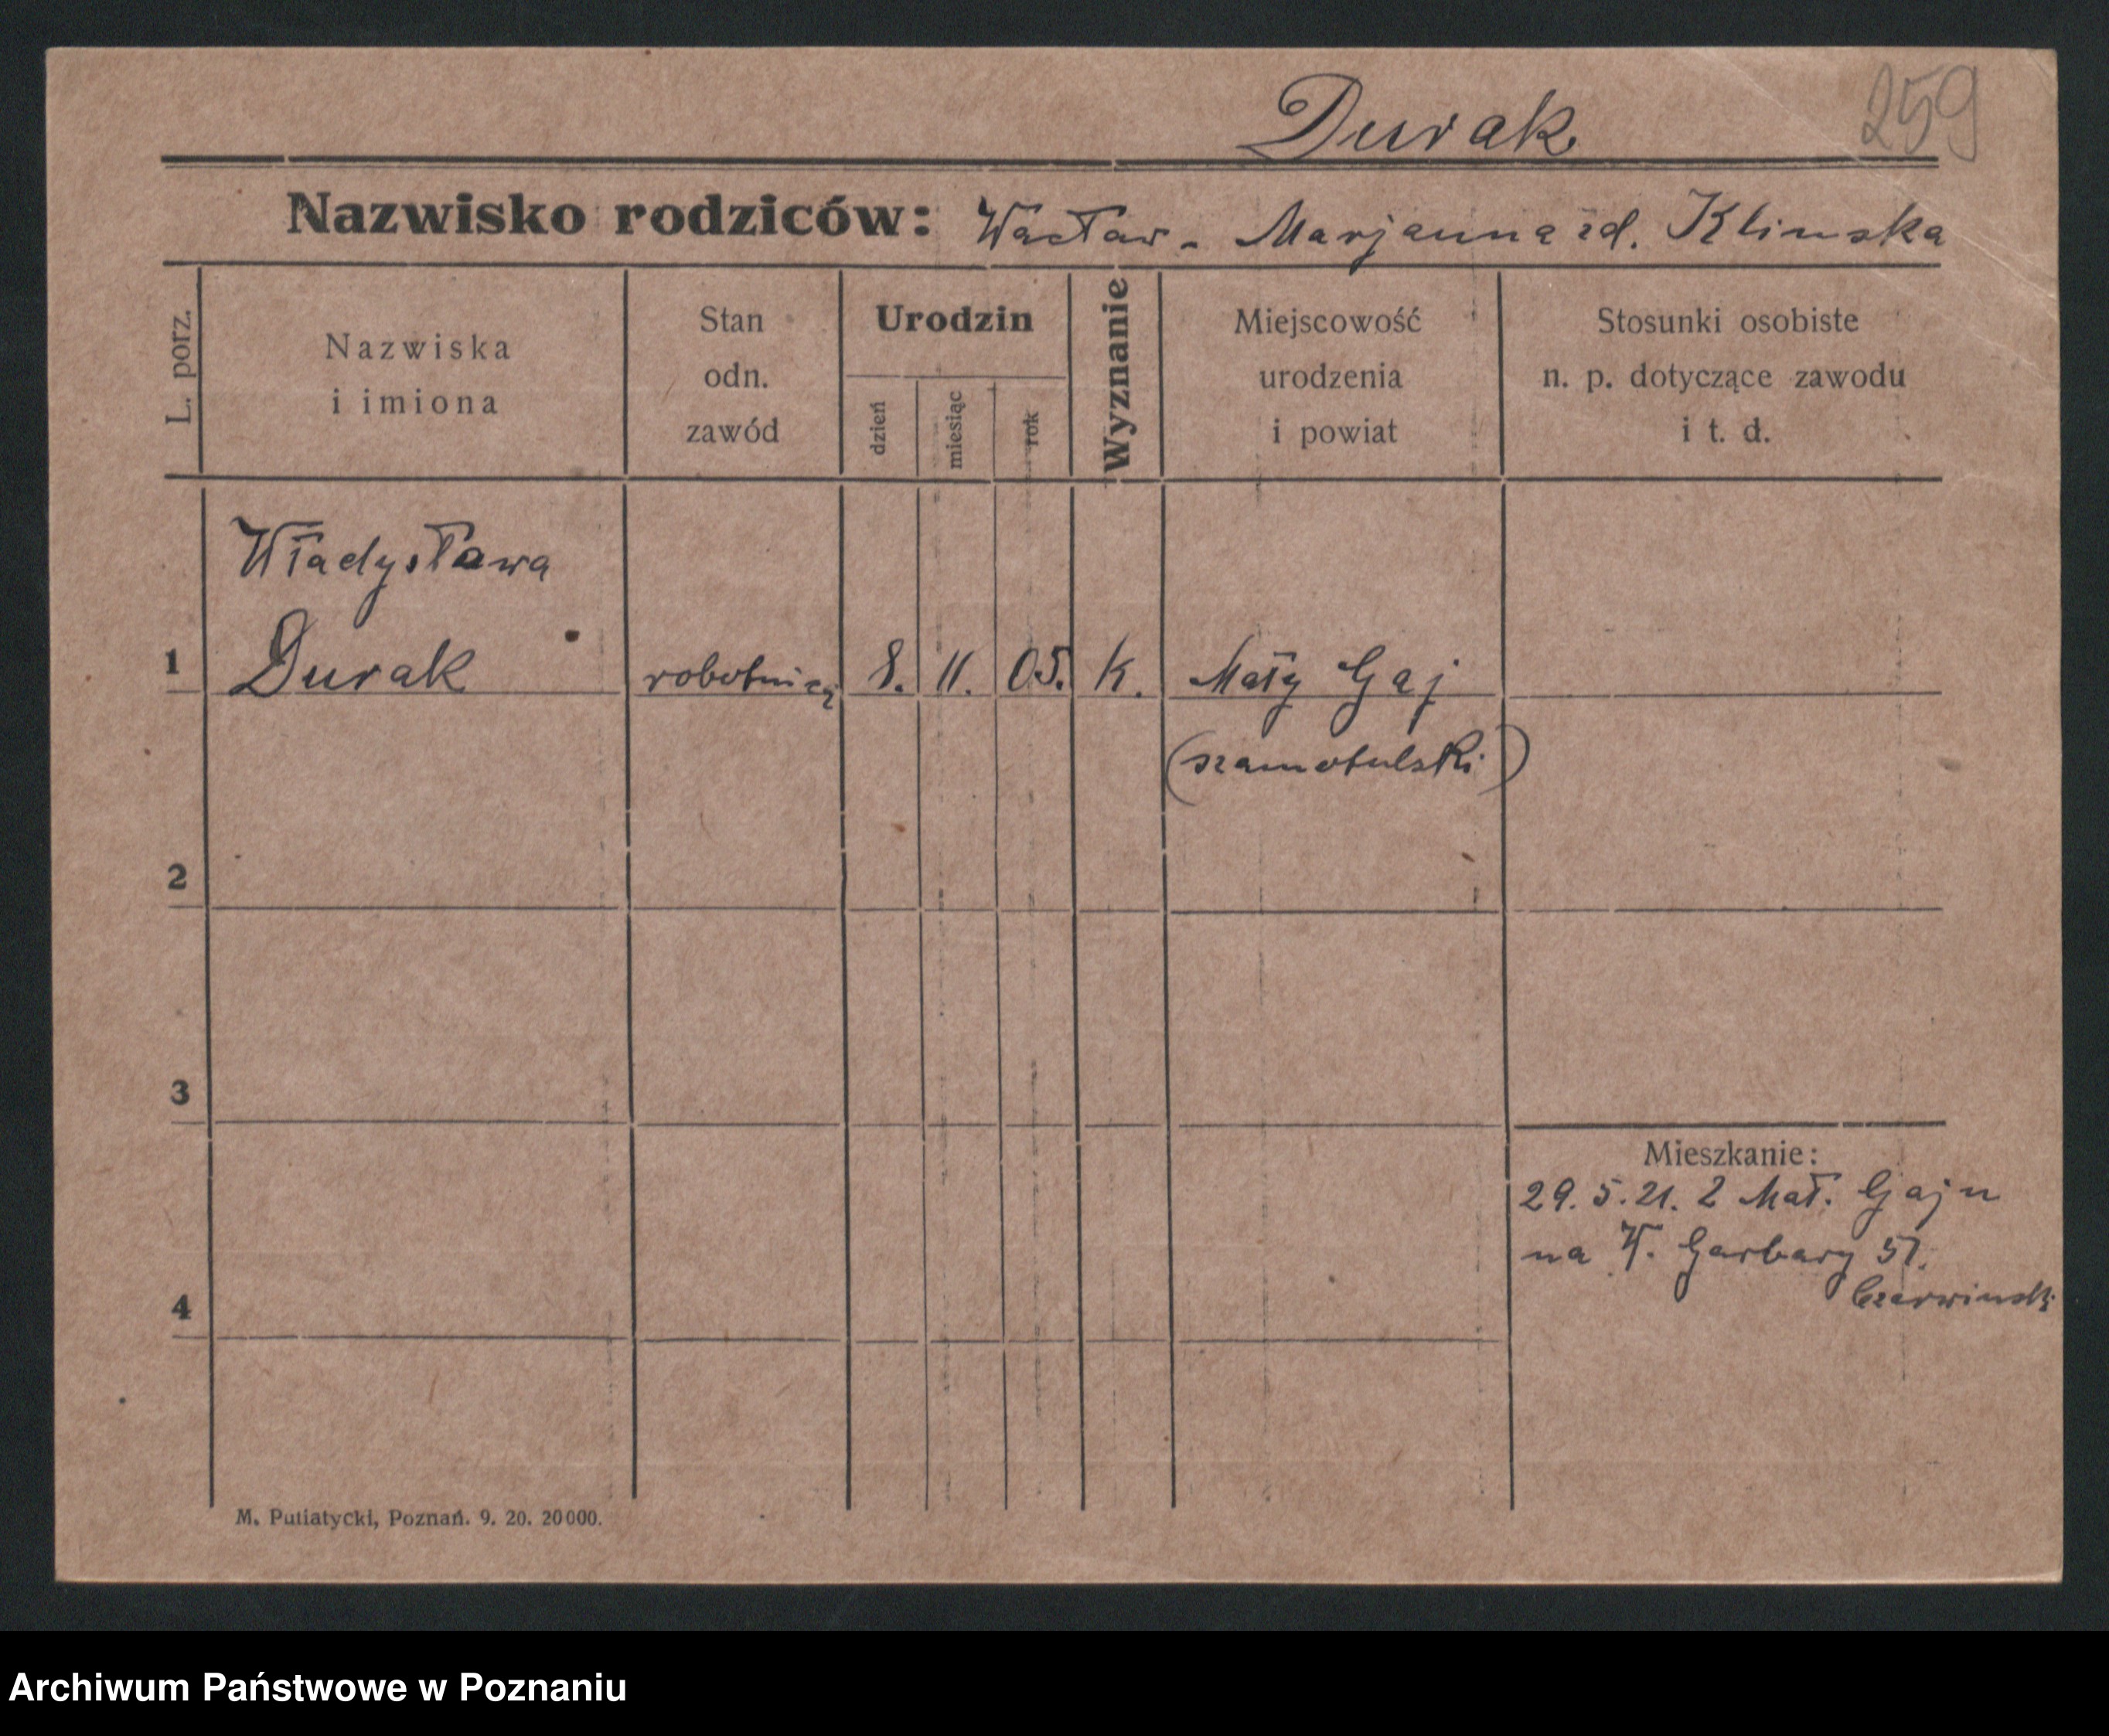 259
Durak
Nazwisko rodziców: Wacław - Marjanna zd. Klinska
L. porz.
Nazwiska
i imiona
Stan
odn.
zawód
Urodzin
dzień
miesiąc
rok
Wyznanie
Miejscowość
urodzenia
i powiat
Stosunki osobiste
n. p. dotyczące zawodu
i t. d.
Władysława
1 Durak robotnica 8. 11. 05. K. Mały Gaj
(szamotulski)
2
3
Mieszkanie:
29. 5. 21. z Mał. Gaju
na W. Garbary 51.
Czerwinski
4
M. Putiatycki, Poznań. 9. 20. 20000.
Archiwum Państwowe w Poznaniu